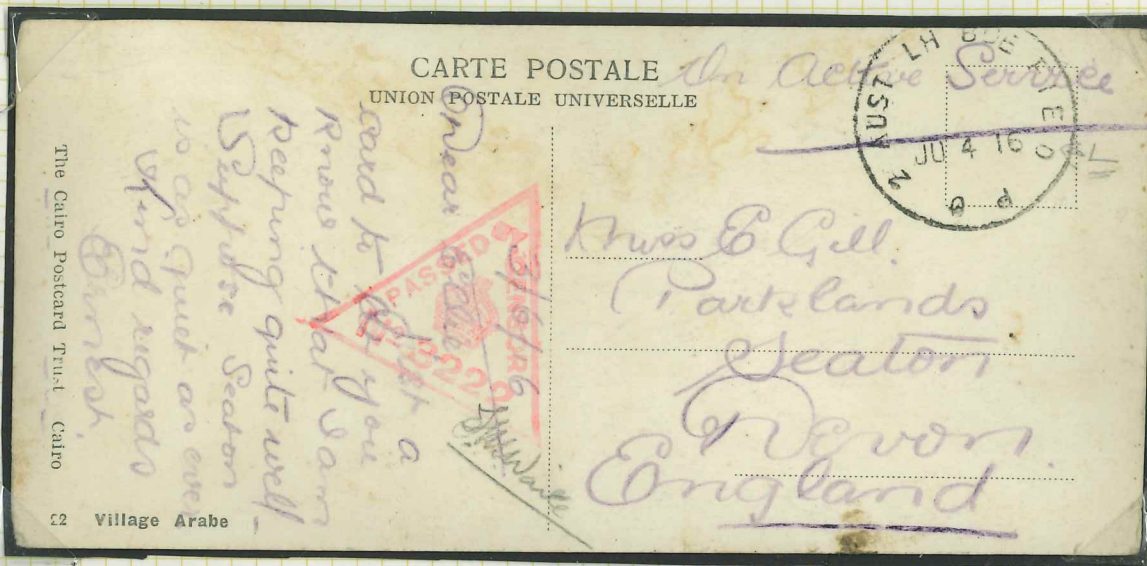 CARTE POSTALE
UNION POSTALE UNIVERSELLE
On Active Service
2 AUST LH BDE FIELD
JU 4 16
P O
Miss E Gill.
Parklands
Seaton
Devon.
England
PASSED BY CENSOR
3/6/16
Dear Ellie
Just a
card to let you
know that I am
keeping quite well
Suppose Seaton
is as quiet as ever
Kind regards
Ernest.
The Cairo Postcard Trust Cairo
22 Village Arabe